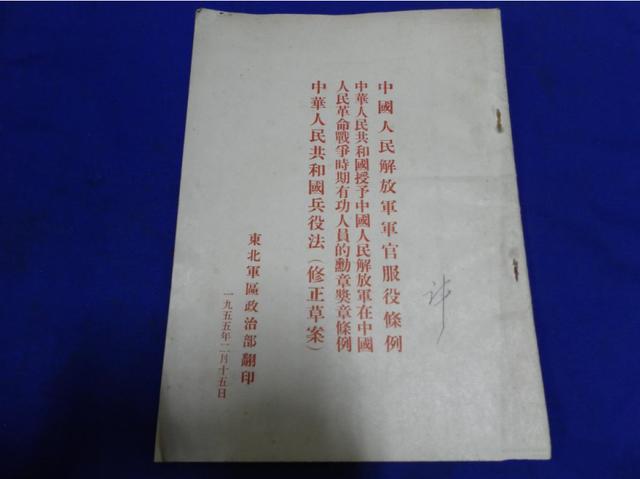 中國人民解放軍軍官服役條例
中華人民共和國授予中國人民解放軍在中國
人民革命戰爭時期有功人員的勳章獎章條例
中華人民共和國兵役法(修正草案)
東北軍區政治部翻印
一九五五年二月十五日